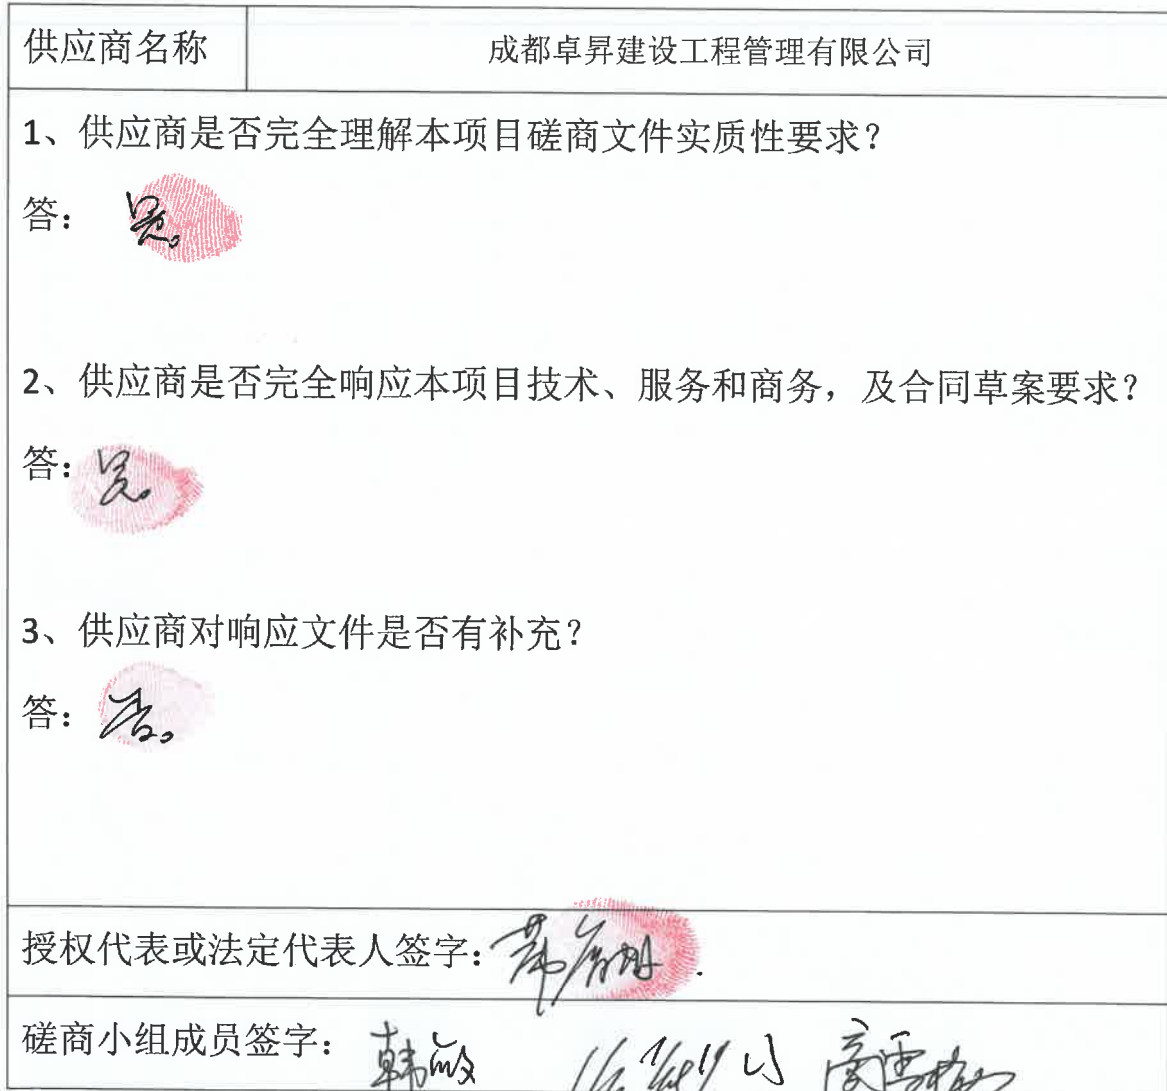 供应商名称 成都卓昇建设工程管理有限公司
1、供应商是否完全理解本项目磋商文件实质性要求？
答： 是。
2、供应商是否完全响应本项目技术、服务和商务，及合同草案要求？
答：是。
3、供应商对响应文件是否有补充？
答：否。
授权代表或法定代表人签字：
磋商小组成员签字： 韩敏